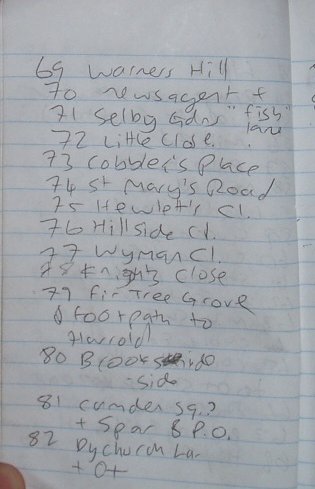 69 Warners Hill
70 newsagent +
71 Selby Gdns "fish"
lane
72 Little Close.
73 Cobbler's Place
74 St Mary's Road
75 Hewlett's Cl.
76 Hillside Cl.
77 Wyman Cl.
78 Knights Close
79 Fir Tree Grove
& footpath to
Harrold
80 Brook
side
81 Camden Sq.?
+ Spar & P.O.
82 Dychurch La.
+